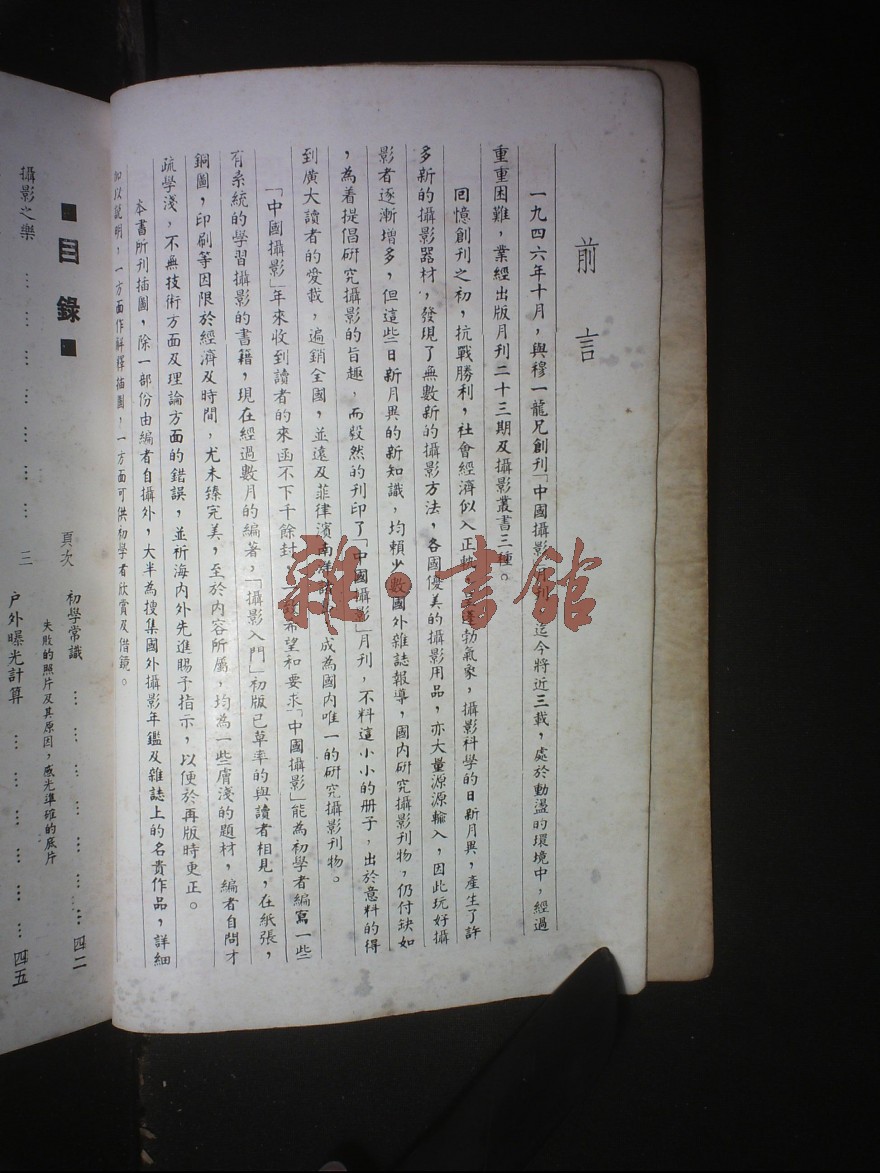 前言
一九四六年十月，與穆一龍兄創刊「中國攝影」月刊，迄今將近三載，處於動盪的環境中，經過
重重困難，業經出版月刊二十三期及攝影叢書三種。
回憶創刊之初，抗戰勝利，社會經濟似入正軌，勃氣象，攝影科學的日新月異，產生了許
多新的攝影器材，發現了無數新的攝影方法，各國優美的攝影用品，亦大量源源輸入，因此玩好攝
影者逐漸增多，但這些日新月異的新知識，均賴少數國外雜誌報導，國內研究攝影刊物，仍付缺如
，為着提倡研究攝影的旨趣，而毅然的刊印了「中國攝影」月刊，不料這小小的册子，出於意料的得
到廣大讀者的愛載，遍銷全國，並遠及菲律濱南洋成為國內唯一的研究攝影刊物。
「中國攝影」年來收到讀者的來函不下千餘封，一致希望和要求「中國攝影」能為初學者編寫一些
有系統的學習攝影的書籍，現在經過數月的編著，「攝影入門」初版已草率的與讀者相見，在紙張，
銅圖，印刷等因限於經濟及時間，尤未臻完美，至於內容所屬，均為一些膚淺的題材，編者自問才
疏學淺，不無技術方面及理論方面的錯誤，並祈海內外先進賜予指示，以便於再版時更正。
本書所刊插圖，除一部份由編者自攝外，大半為搜集國外攝影年鑑及雜誌上的名貴作品，詳細
加以說明，一方面作解釋插圖，一方面可供初學者欣賞及借鏡。
■目錄■
頁次
攝影之樂 … … … … … … … 三
初學常識 … … … … … … 四二
失敗的照片及其原因，感光準確的底片
户外曝光計算 … … … … … … 四五
雜·書館